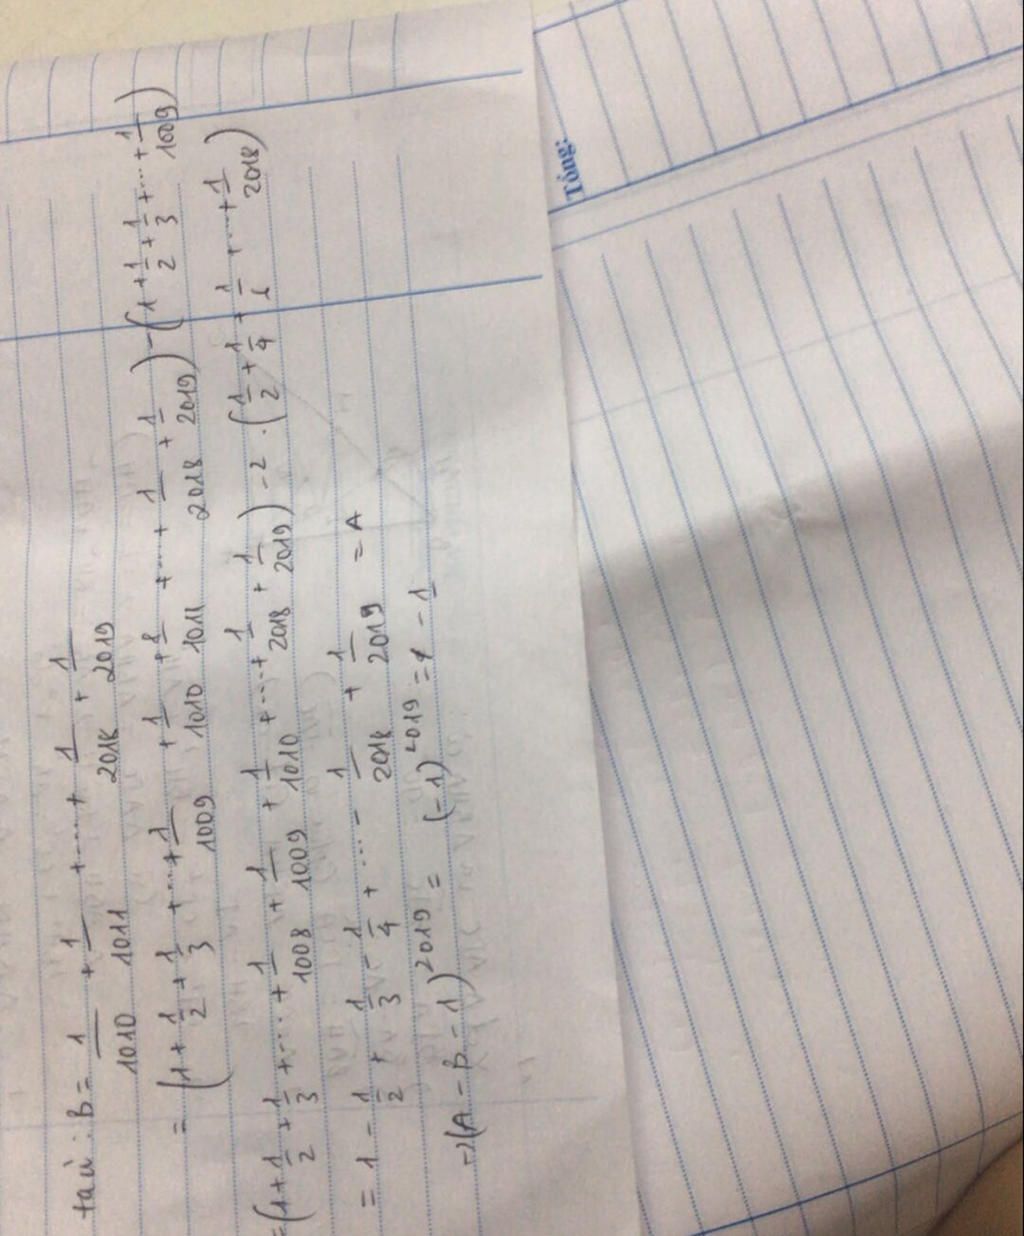 ta có : B = 1/1010 + 1/1011 + .... + 1/2018 + 1/2019
= (1 + 1/2 + 1/3 + ... + 1/1009 + 1/1010 + 1/1011 + ... + 1/2018 + 1/2019) - (1 + 1/2 + 1/3 + ... + 1/1009)
= (1 + 1/2 + 1/3 + .... + 1/1008 + 1/1009 + 1/1010 + .... + 1/2018 + 1/2019) - 2 . (1/2 + 1/4 + ... + 1/2018)
= 1 - 1/2 + 1/3 - 1/4 + .... - 1/2018 + 1/2019 = A
→ (A - B - 1)^2019 = (-1)^2019 = - 1
Tổng: